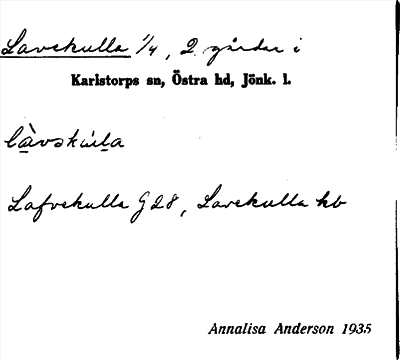 Lavekulla 1/4, 2 gårdar i
Karlstorps sn, Östra hd, Jönk. l.
Lafvekulla G28, Lavekulla kb
Annalisa Anderson 1935